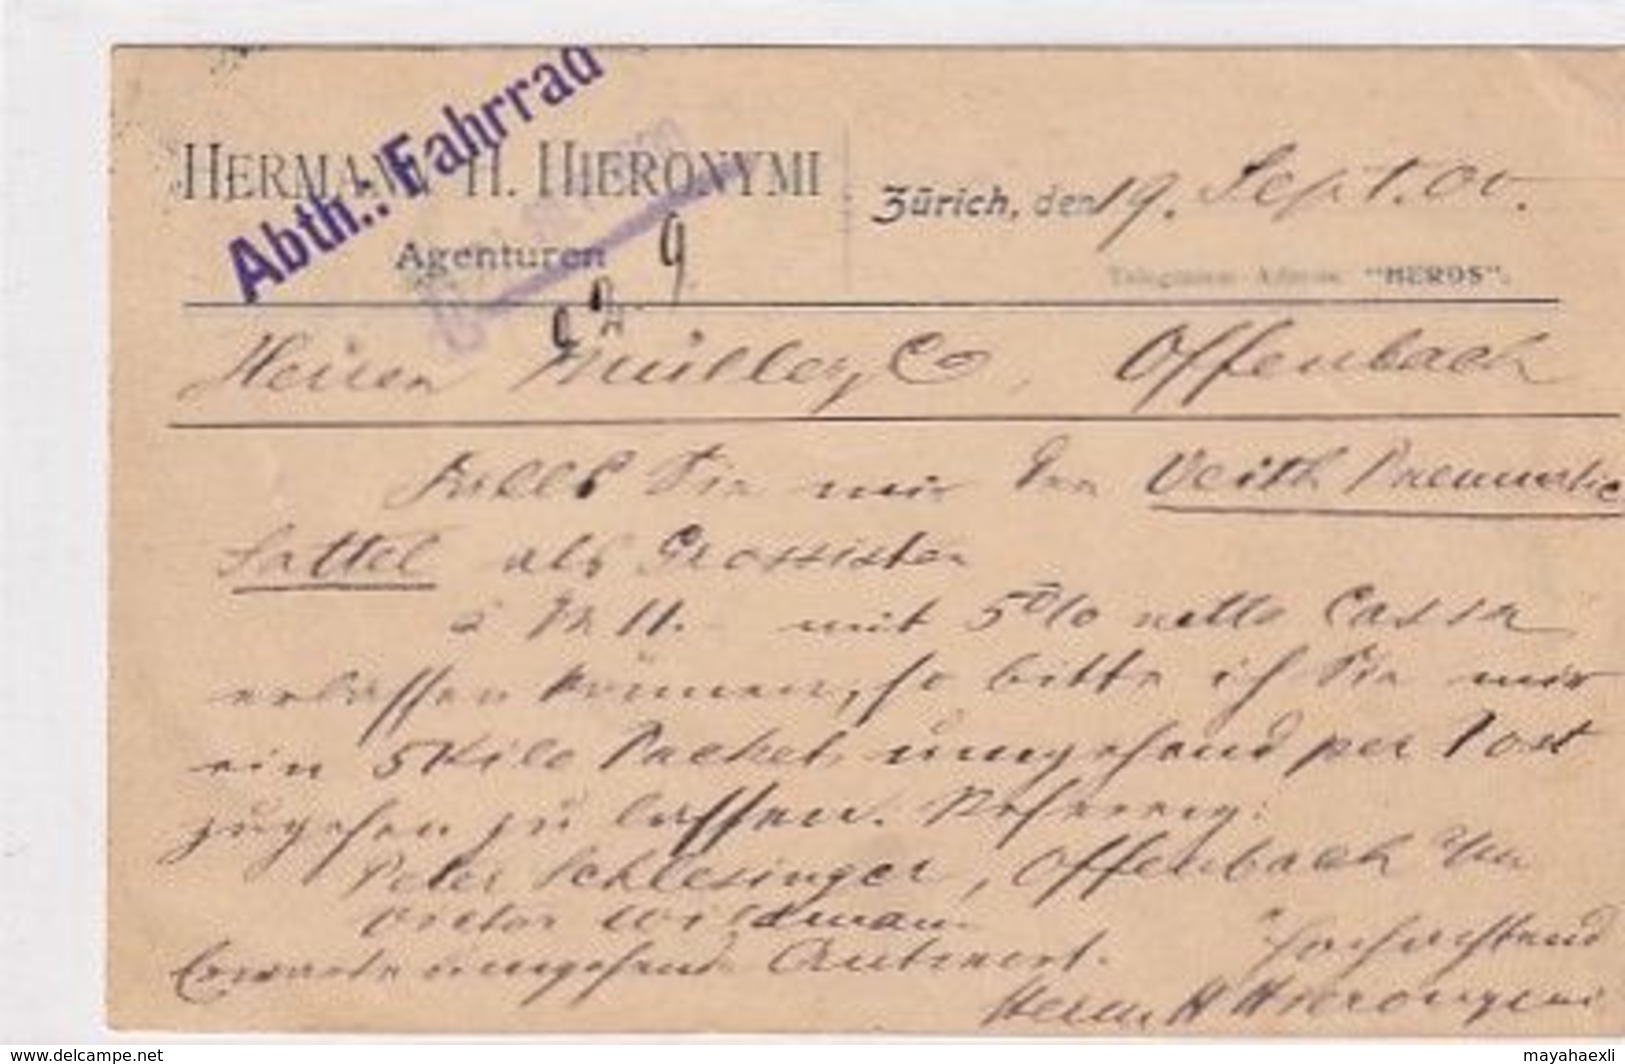 Abth.: Fahrrad
HERMANN H. HIERONYMI
Agenturen
Zürich, den 19. Sept. 00.
Telegramm-Adresse "HEROS".
Herren Müller, Co, Offenbach
Falls Sie mir den Veith Pneumatic
Sattel als Grossisten
à M 11.- mit 5% netto Cassa
erlassen können, so bitte ich Sie mir
ein 5 Kilo Packet umgehend per Post
zugehen zu lassen.
Peter Schlesinger, Offenbach
Victor
Erwarte umgehend Antwort. Hochachtend
Herm. H Hieronymi
www.delcampe.net
mayahaexli